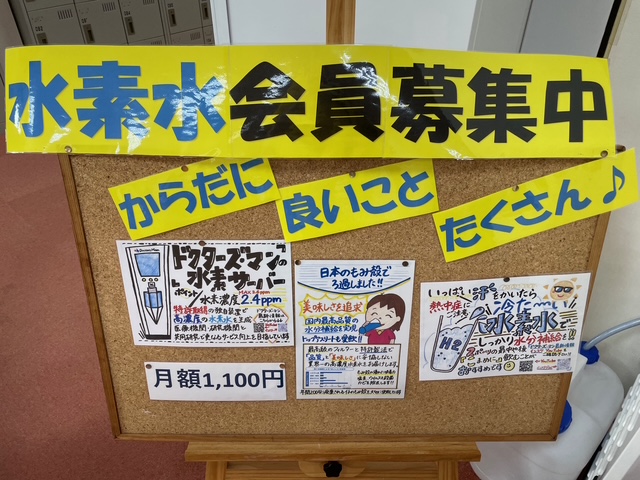 水素水会員募集中
からだに
良いこと
たくさん♪
ドクターズマンの
水素サーバー
ポイント!
MAX
水素濃度 2.4ppm
特許取得の独自装置で
高濃度の水素水を生成
医療機関・研究機関と
月額1,100円
日本のもみ殻で
ろ過しました!!
美味しさを追求
国内最高品質の
水分補給を実現
トップアスリートも愛飲!!
いっぱい汗をかいたら
熱中症に
ご注意
冷た〜い
水素水で
しっかり水分補給を!
H2
おすすめです